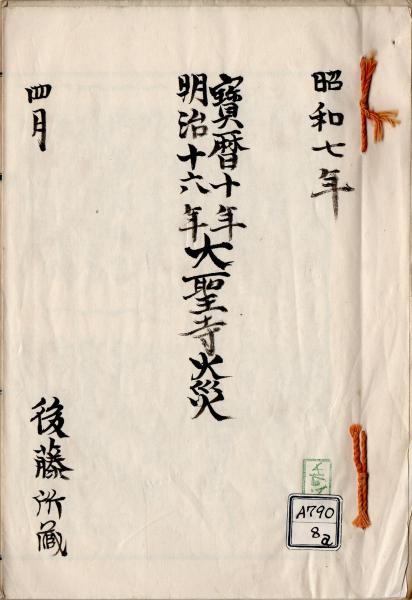 昭和七年
寶暦十年
明治十六年
大聖寺火災
四月
後藤所蔵
A790
8a